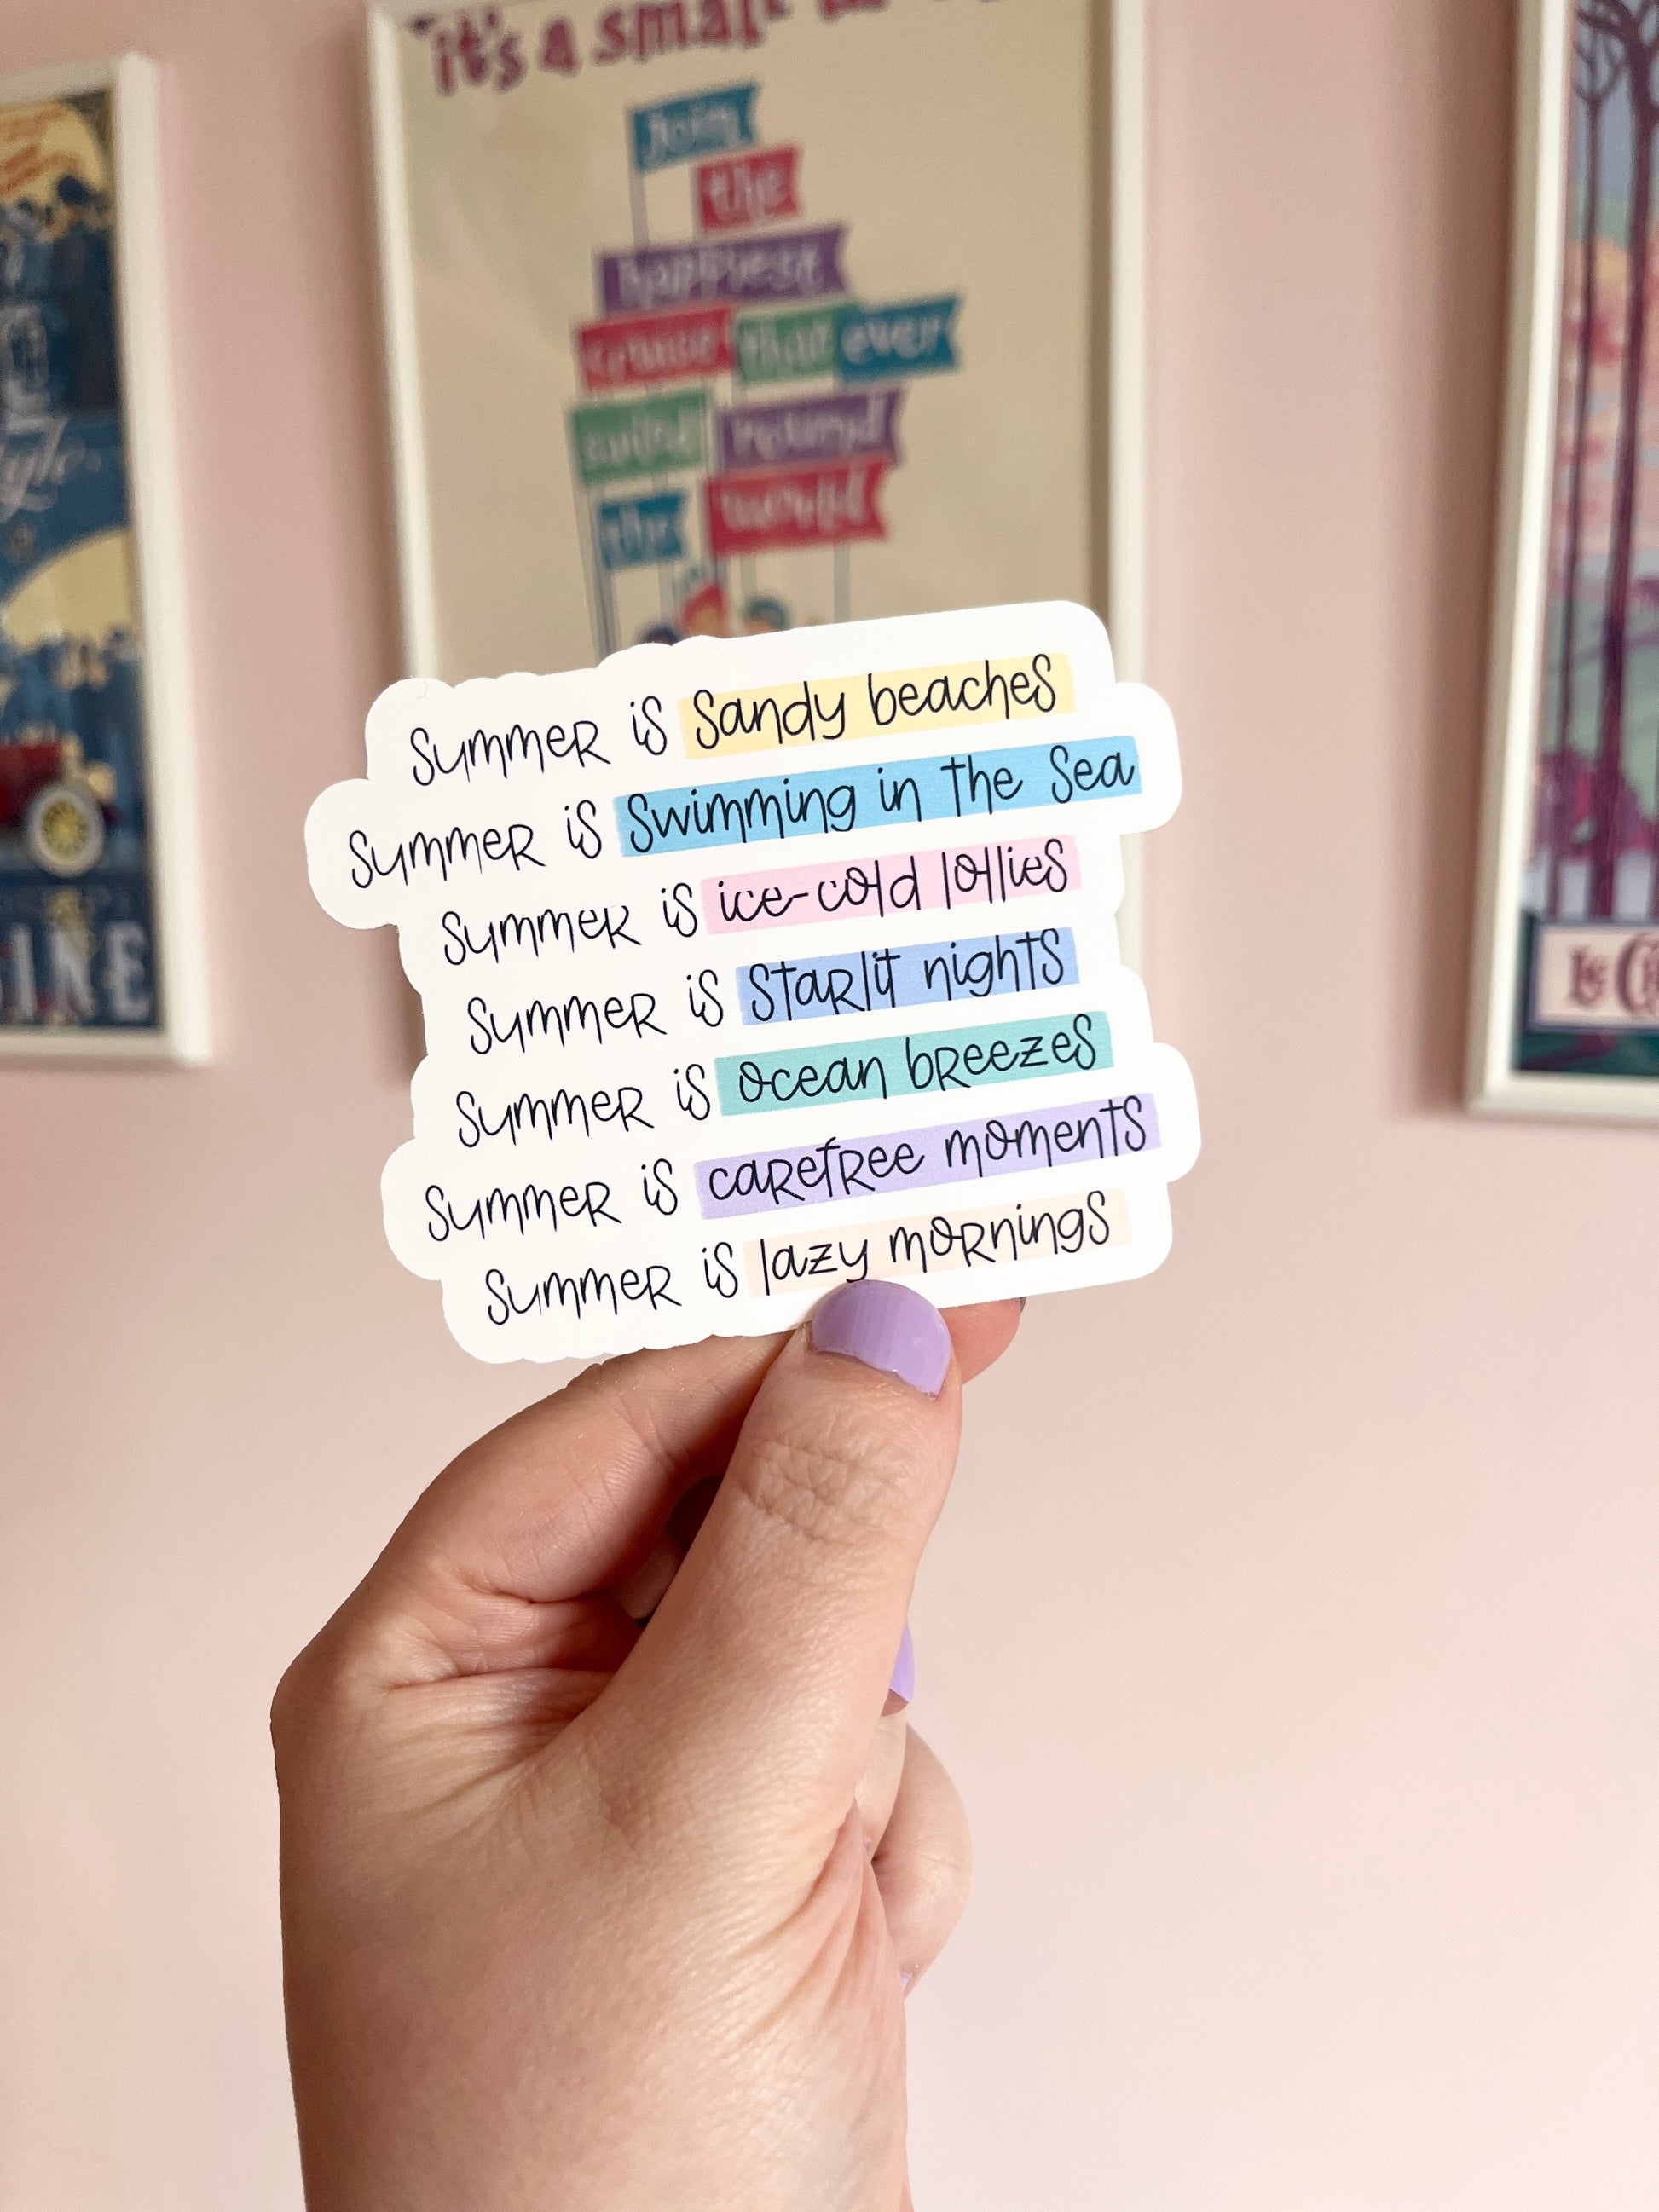 it's a small
Join
the
happiest
cruise that ever
sailed round
the world
style
Summer is Sandy beaches
Summer is Swimming in the Sea
Summer is ice-cold lollies
Summer is starlit nights
Summer is ocean breezes
Summer is carefree moments
Summer is lazy mornings